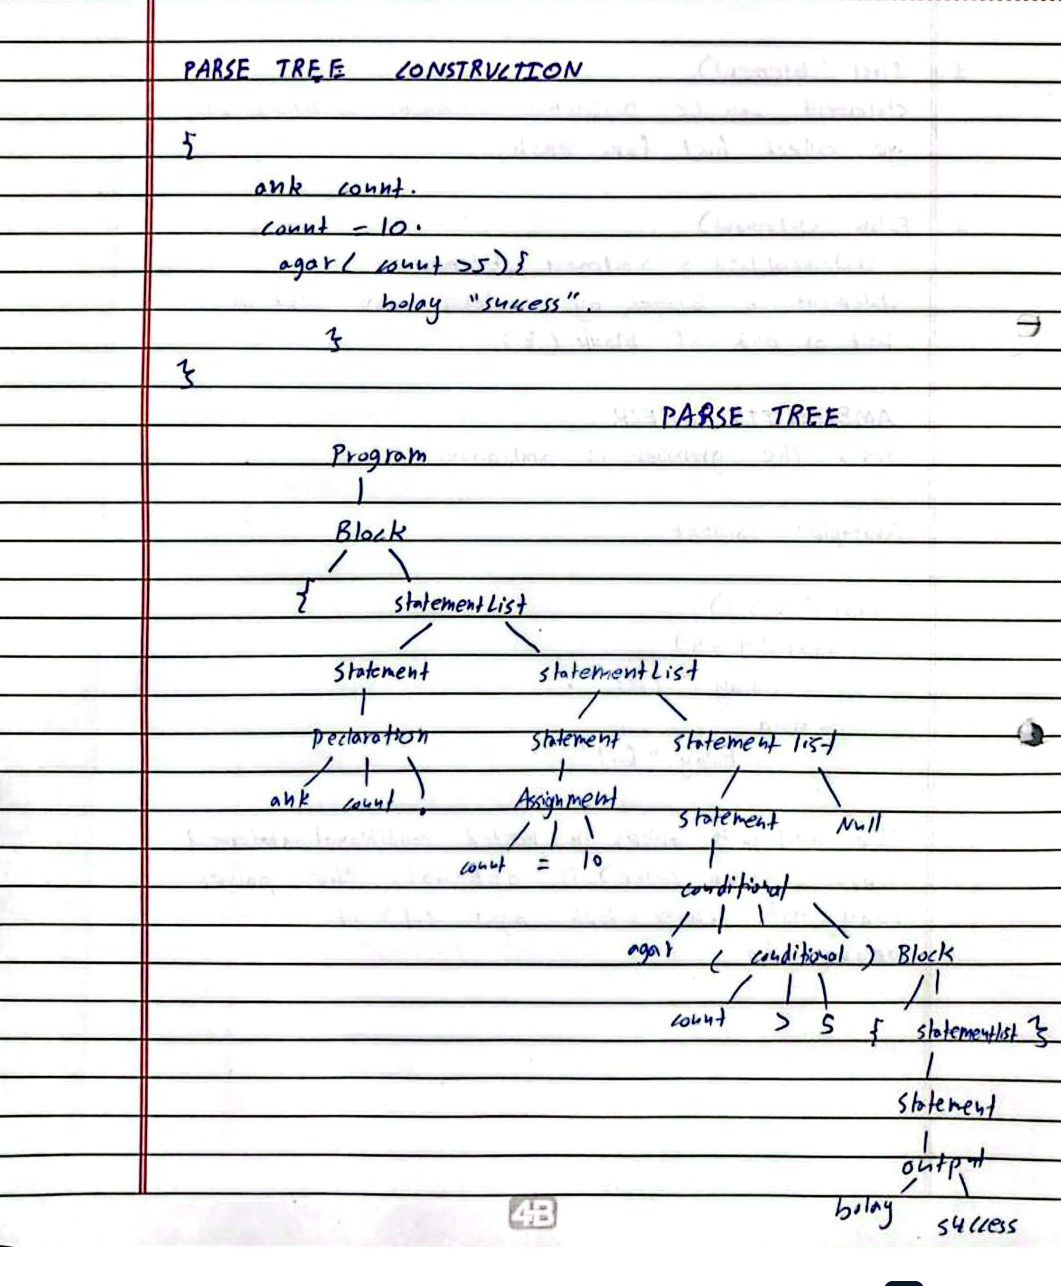 PARSE TREE CONSTRUCTION
{
ank count.
count = 10.
agar( count >5) {
bolay "success".
}
}
PARSE TREE
Program
Block
{ statementList
Statement statementList
Declaration statement statement list
ank count . Assignment statement Null
count = 10
conditional
agar ( conditional ) Block
count > 5 { statementlist }
Statement
output
bolay success
4B